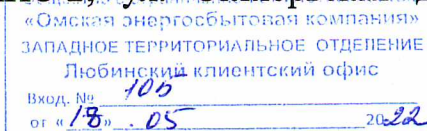 «Омская энергосбытовая компания»
ЗАПАДНОЕ ТЕРРИТОРИАЛЬНОЕ ОТДЕЛЕНИЕ
Любинский клиентский офис
Вход. №
от «18» .05 2022